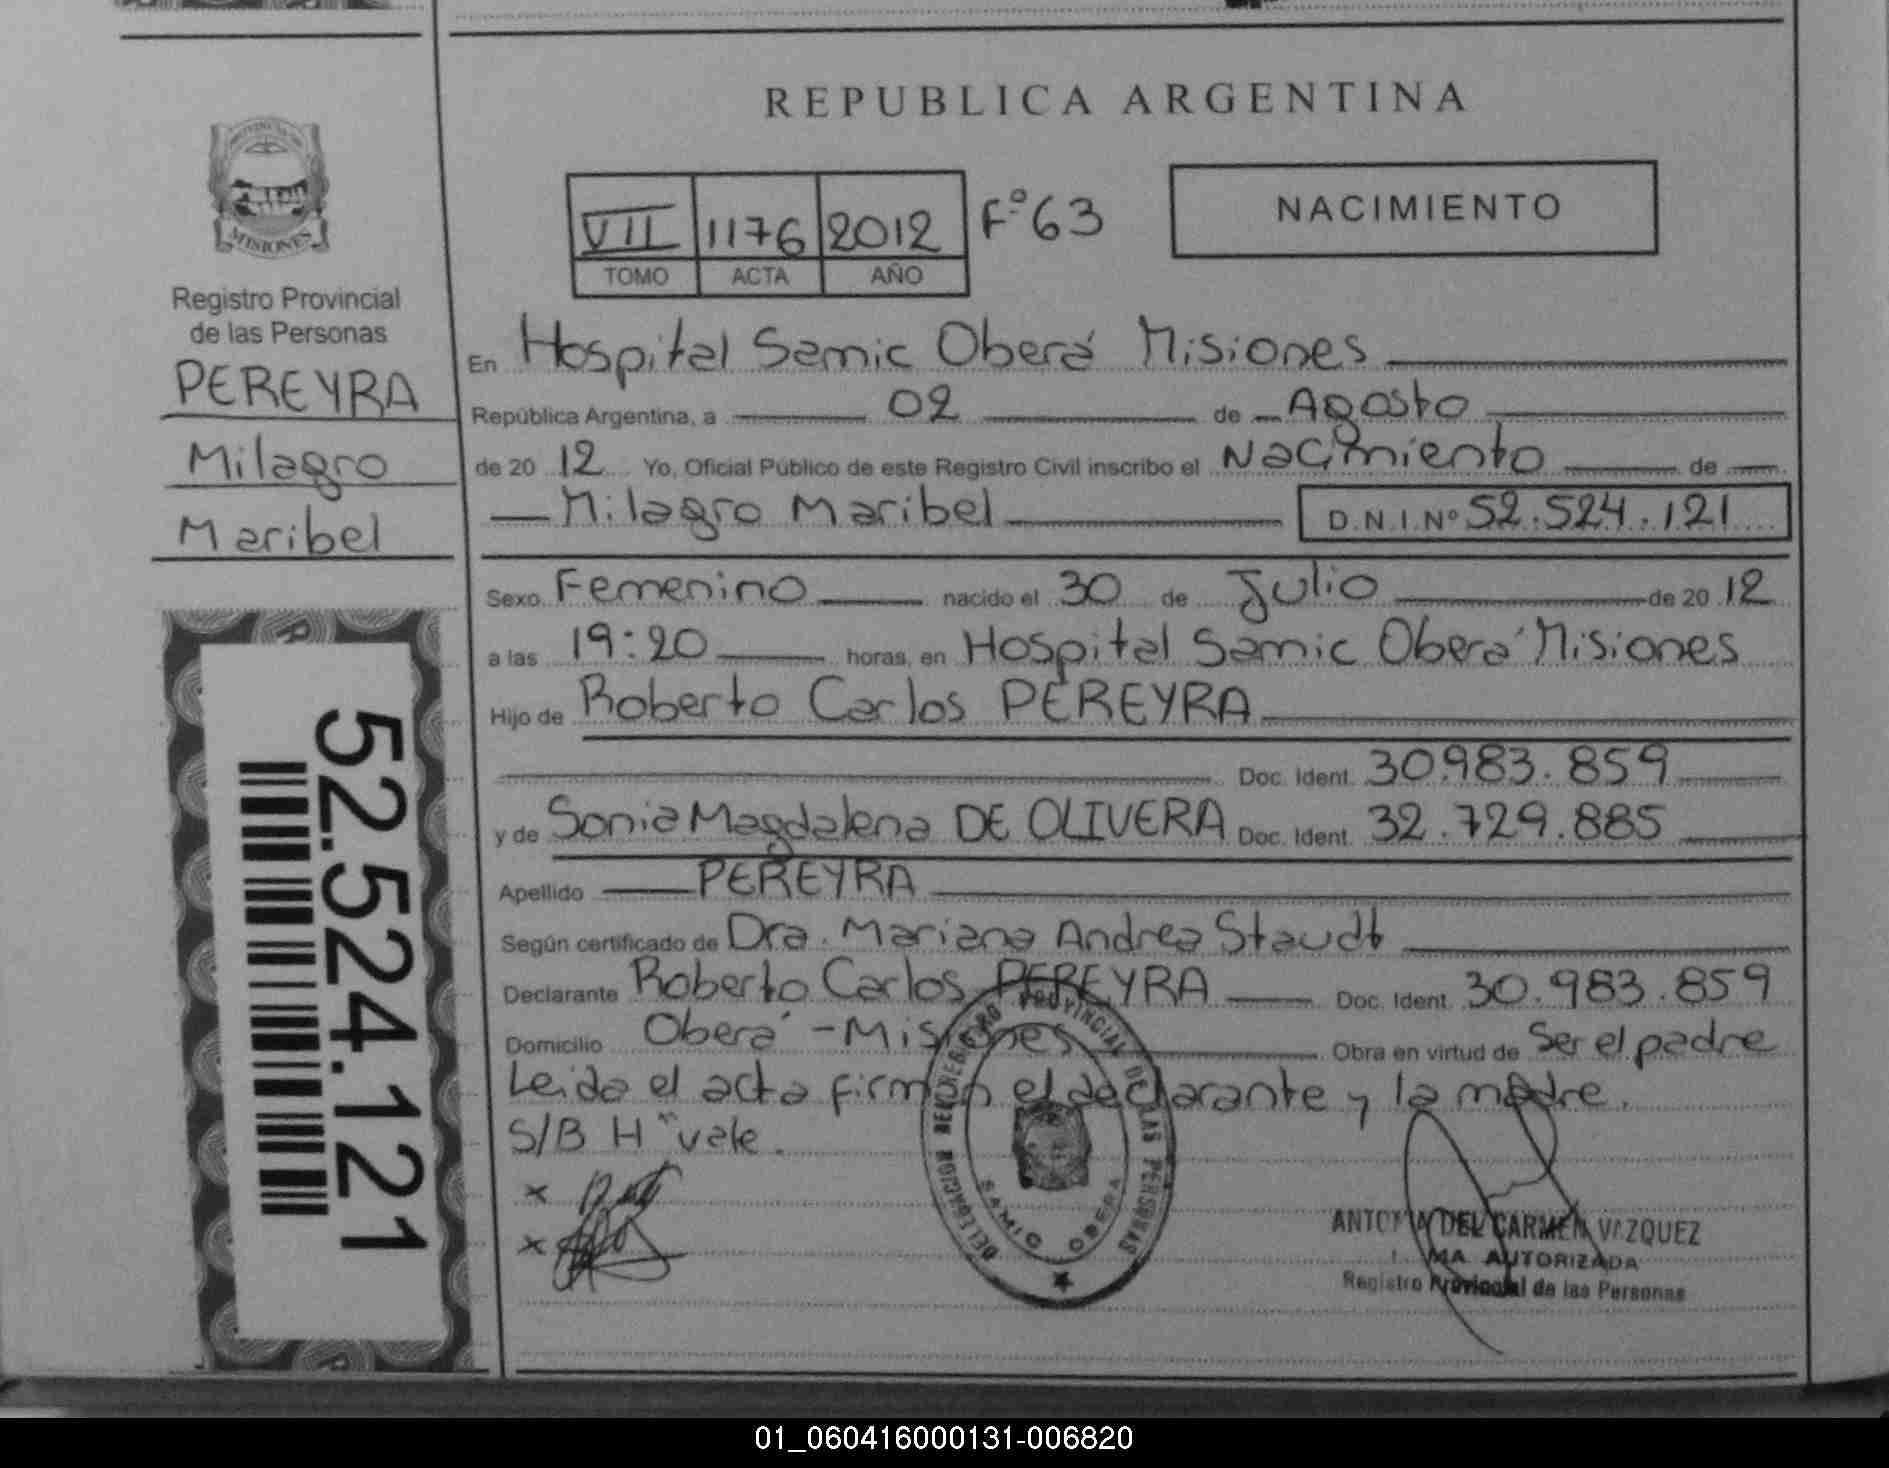 REPUBLICA ARGENTINA
PROVINCIA DE
MISIONES
Registro Provincial
de las Personas
PEREYRA
Milagro
Maribel
52.524.121
VII 1176 2012 Fº 63
TOMO ACTA AÑO
NACIMIENTO
En Hospital Samic Oberá Misiones
República Argentina, a 02 de Agosto
de 20 12 Yo, Oficial Público de este Registro Civil inscribo el Nacimiento de
Milagro Maribel D.N.I. Nº 52.524.121
Sexo Femenino nacido el 30 de Julio de 20 12
a las 19:20 horas, en Hospital Samic Oberá Misiones
Hijo de Roberto Carlos PEREYRA
Doc. Ident. 30.983.859
y de Sonia Magdalena DE OLIVERA Doc. Ident. 32.729.885
Apellido PEREYRA
Según certificado de Dra. Mariana Andrea Staudt
Declarante Roberto Carlos PEREYRA Doc. Ident. 30.983.859
Domicilio Oberá - Misiones Obra en virtud de Ser el padre
Leida el acta firman el declarante y la madre.
S/B H "vale.
x
x
DELEGACION DEL REGISTRO PROVINCIAL DE LAS PERSONAS
SAMIC OBERA
DEL CARMEN VAZQUEZ
AUTORIZADA
Registro Provincial de las Personas
01_060416000131-006820